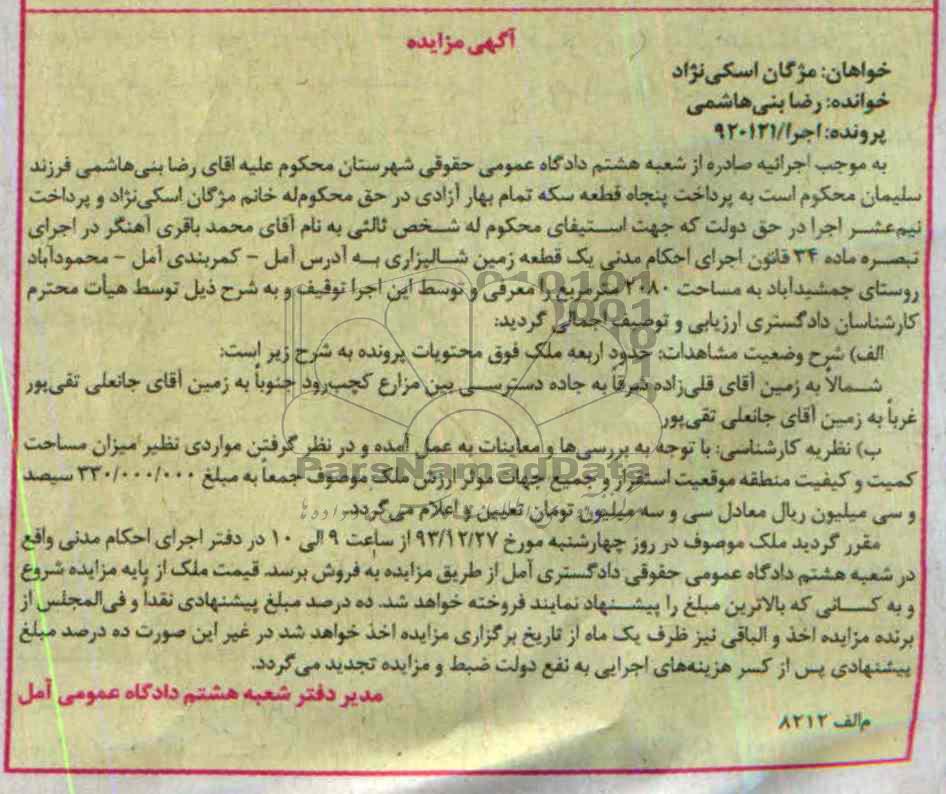 آگهی مزایده
خواهان: مژگان اسکی‌نژاد
خوانده: رضا بنی‌هاشمی
پرونده: اجرا/۹۲۰۱۲۱
به موجب اجرائیه صادره از شعبه هشتم دادگاه عمومی حقوقی شهرستان محکوم علیه اقای رضا بنی‌هاشمی فرزند
سلیمان محکوم است به پرداخت پنجاه قطعه سکه تمام بهار آزادی در حق محکوم‌له خانم مژگان اسکی‌نژاد و پرداخت
نیم‌عشر اجرا در حق دولت که جهت استیفای محکوم له شخص ثالثی به نام آقای محمد باقری آهنگر در اجرای
تبصره ماده ۳۴ قانون اجرای احکام مدنی یک قطعه زمین شالیزاری به آدرس آمل - کمربندی آمل - محمودآباد
روستای جمشیدآباد به مساحت ۲۰۸۰ مترمربع را معرفی و توسط این اجرا توقیف و به شرح ذیل توسط هیأت محترم
کارشناسان دادگستری ارزیابی و توصیف اجمالی گردید:
الف) شرح وضعیت مشاهدات: حدود اربعه ملک فوق محتویات پرونده به شرح زیر است:
شمالاً به زمین آقای قلی‌زاده شرقاً به جاده دسترسی بین مزارع کچب‌رود جنوباً به زمین آقای جانعلی تقی‌پور
غرباً به زمین آقای جانعلی تقی‌پور
ب) نظریه کارشناسی: با توجه به بررسی‌ها و معاینات به عمل آمده و در نظر گرفتن مواردی نظیر میزان مساحت
کمیت و کیفیت منطقه موقعیت استقرار و جمیع جهات موثر ارزش ملک موصوف جمعاً به مبلغ ۳۳۰/۰۰۰/۰۰۰ سیصد
و سی میلیون ریال معادل سی و سه میلیون تومان تعیین و اعلام می‌گردد.
مقرر گردید ملک موصوف در روز چهارشنبه مورخ ۹۳/۱۲/۲۷ از ساعت ۹ الی ۱۰ در دفتر اجرای احکام مدنی واقع
در شعبه هشتم دادگاه عمومی حقوقی دادگستری آمل از طریق مزایده به فروش برسد. قیمت ملک از پایه مزایده شروع
و به کسانی که بالاترین مبلغ را پیشنهاد نمایند فروخته خواهد شد. ده درصد مبلغ پیشنهادی نقداً و فی‌المجلس از
برنده مزایده اخذ و الباقی نیز ظرف یک ماه از تاریخ برگزاری مزایده اخذ خواهد شد در غیر این صورت ده درصد مبلغ
پیشنهادی پس از کسر هزینه‌های اجرایی به نفع دولت ضبط و مزایده تجدید می‌گردد.
مدیر دفتر شعبه هشتم دادگاه عمومی آمل
م‌الف ۸۲۱۲
ParsNamadData